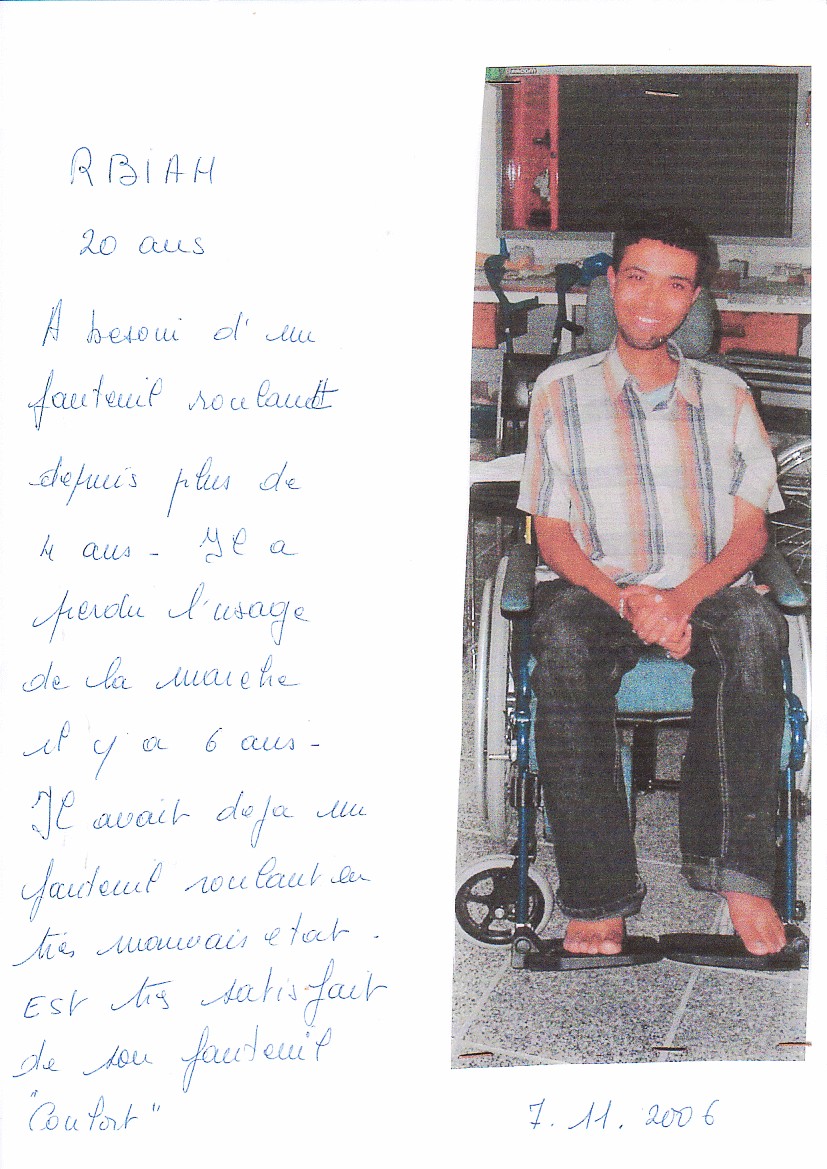 RBIAH
20 ans
A besoin d'un
fauteuil roulant
depuis plus de
4 ans - Il a
perdu l'usage
de la marche
il y a 6 ans -
Il avait deja un
fauteuil roulant en
très mauvais etat.
EST très satisfait
de son fauteuil
"Confort"
7.11.2006